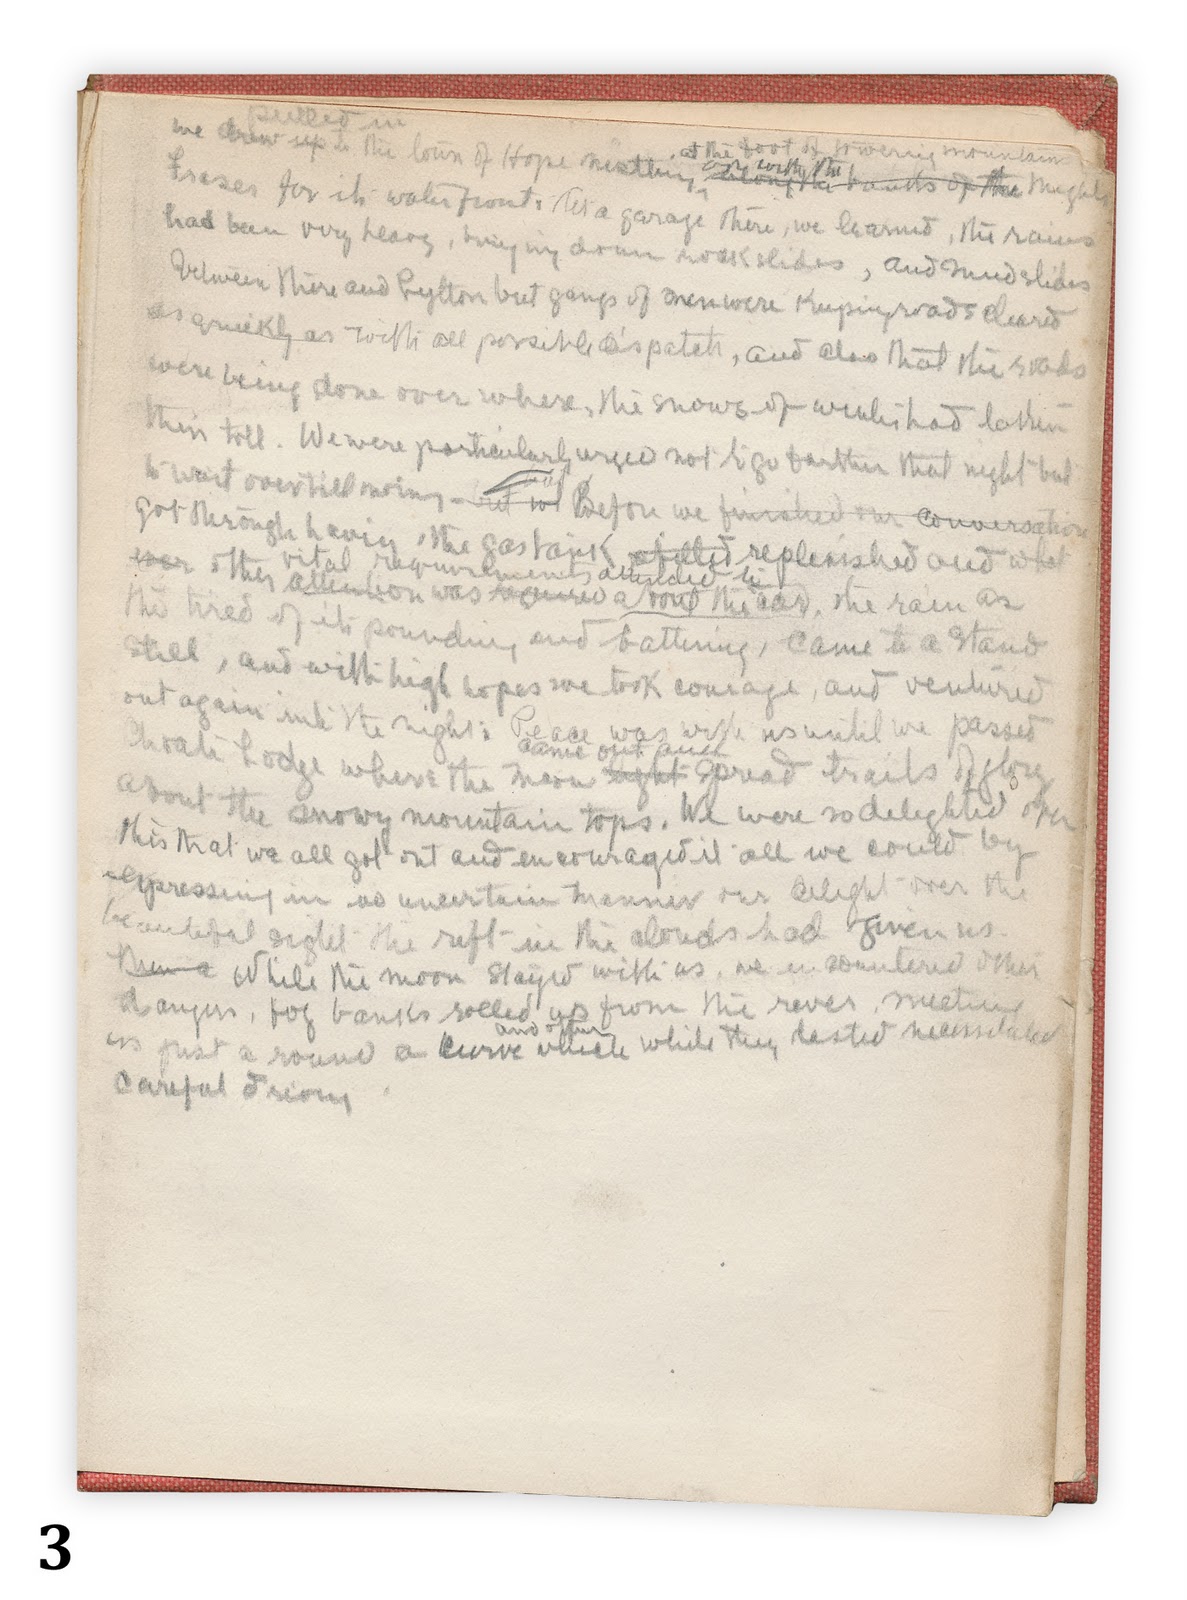 pulled in
we drew up to the town of Hope nestling at the foot of towering mountains
and with the along the banks of the Mighty
Fraser for its waterfront. At a garage there, we learned, the rains
had been very heavy, bringing down rockslides, and mudslides
between there and Lytton but gangs of men were keeping roads cleared
as quickly as with all possible dispatch, and also that the roads
were being done over where, the snows of winter had taken
their toll. We were particularly urged not to go farther that night but
to wait over till morning - but Before we finished our conversation
got through having, the gas tank refilled replenished and what
ever other vital requirements attended to
attention was required around the car, the rain as
tho tired of its pounding and battering, came to a stand
still, and with high hopes we took courage, and ventured
out again into the night. Peace was with us until we passed
came out and
Choate Lodge where the moon spread trails of glory
about the snowy mountain tops. We were so delighted over
this that we all got out and encouraged it all we could by
expressing in no uncertain manner our delight over the
beautiful sight the rift in the clouds had given us.
While the moon stayed with us, we encountered other
dangers, fog banks rolled up from the river, meeting
and often
us just around a curve which while they lasted necessitated
careful driving
3